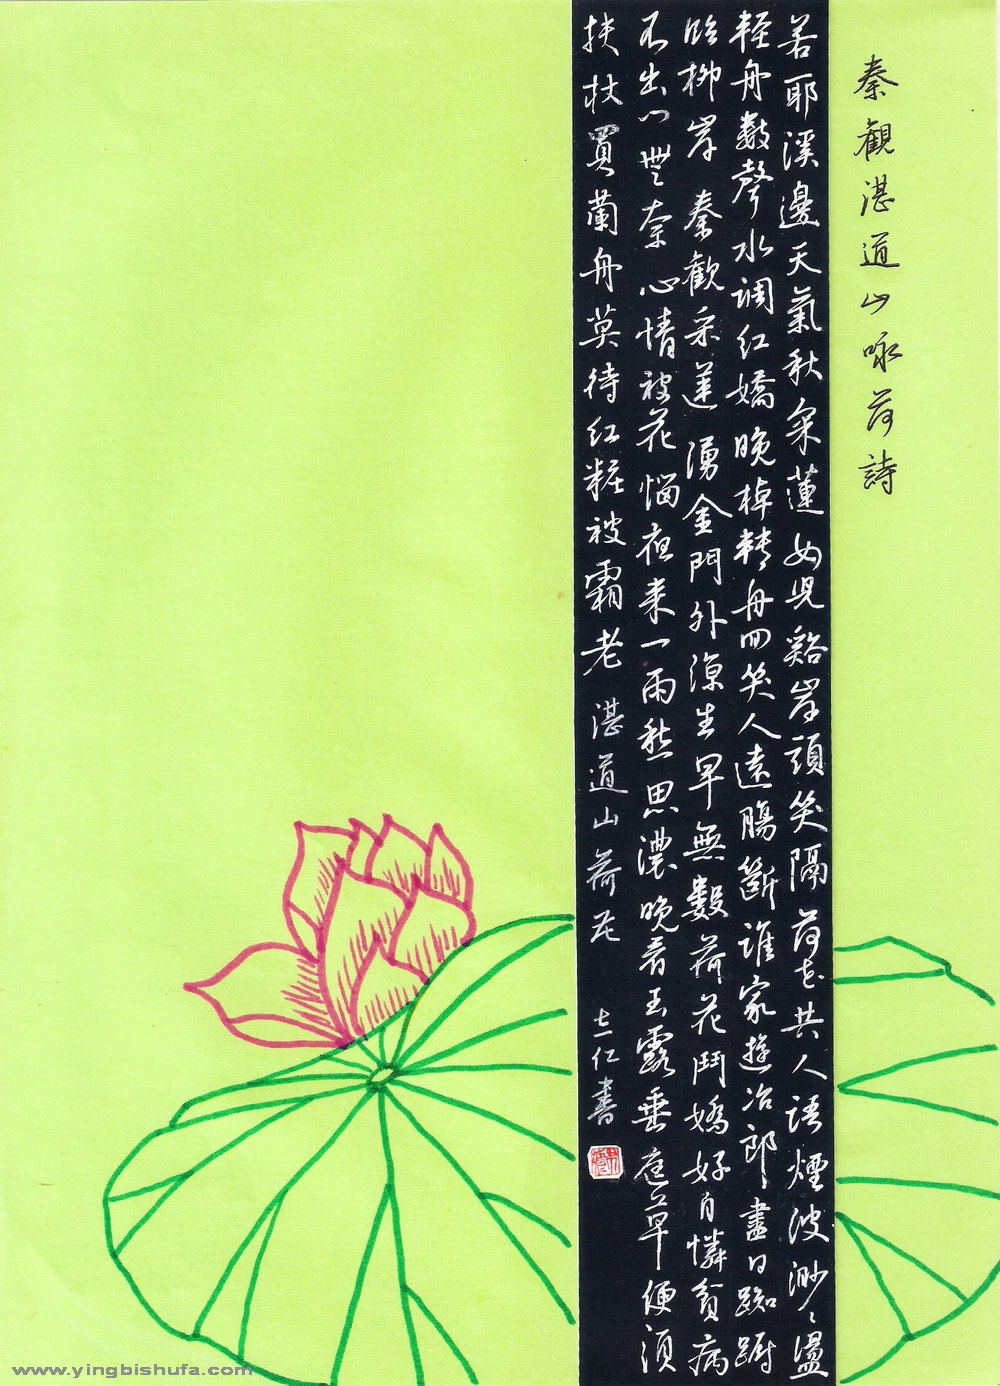 秦觀湛道山咏荷詩
若耶溪邊天氣秋采蓮女児谿岸頭笑隔荷花共人語煙波渺渺盪
輕舟數聲水调红嬌晚棹轉舟囬笑人遠腸斷誰家遊冶郎盡日踟蹰
臨柳岸 秦歡采蓮 湧金門外涼生早無數荷花鬥嬌好自憐貧病
不出门無奈心情被花惱夜来一雨愁思濃晚看玉露垂庭草便須
扶杖買蘭舟莫待红粧被霜老 湛道山荷花 志仁書
www.yingbishufa.com